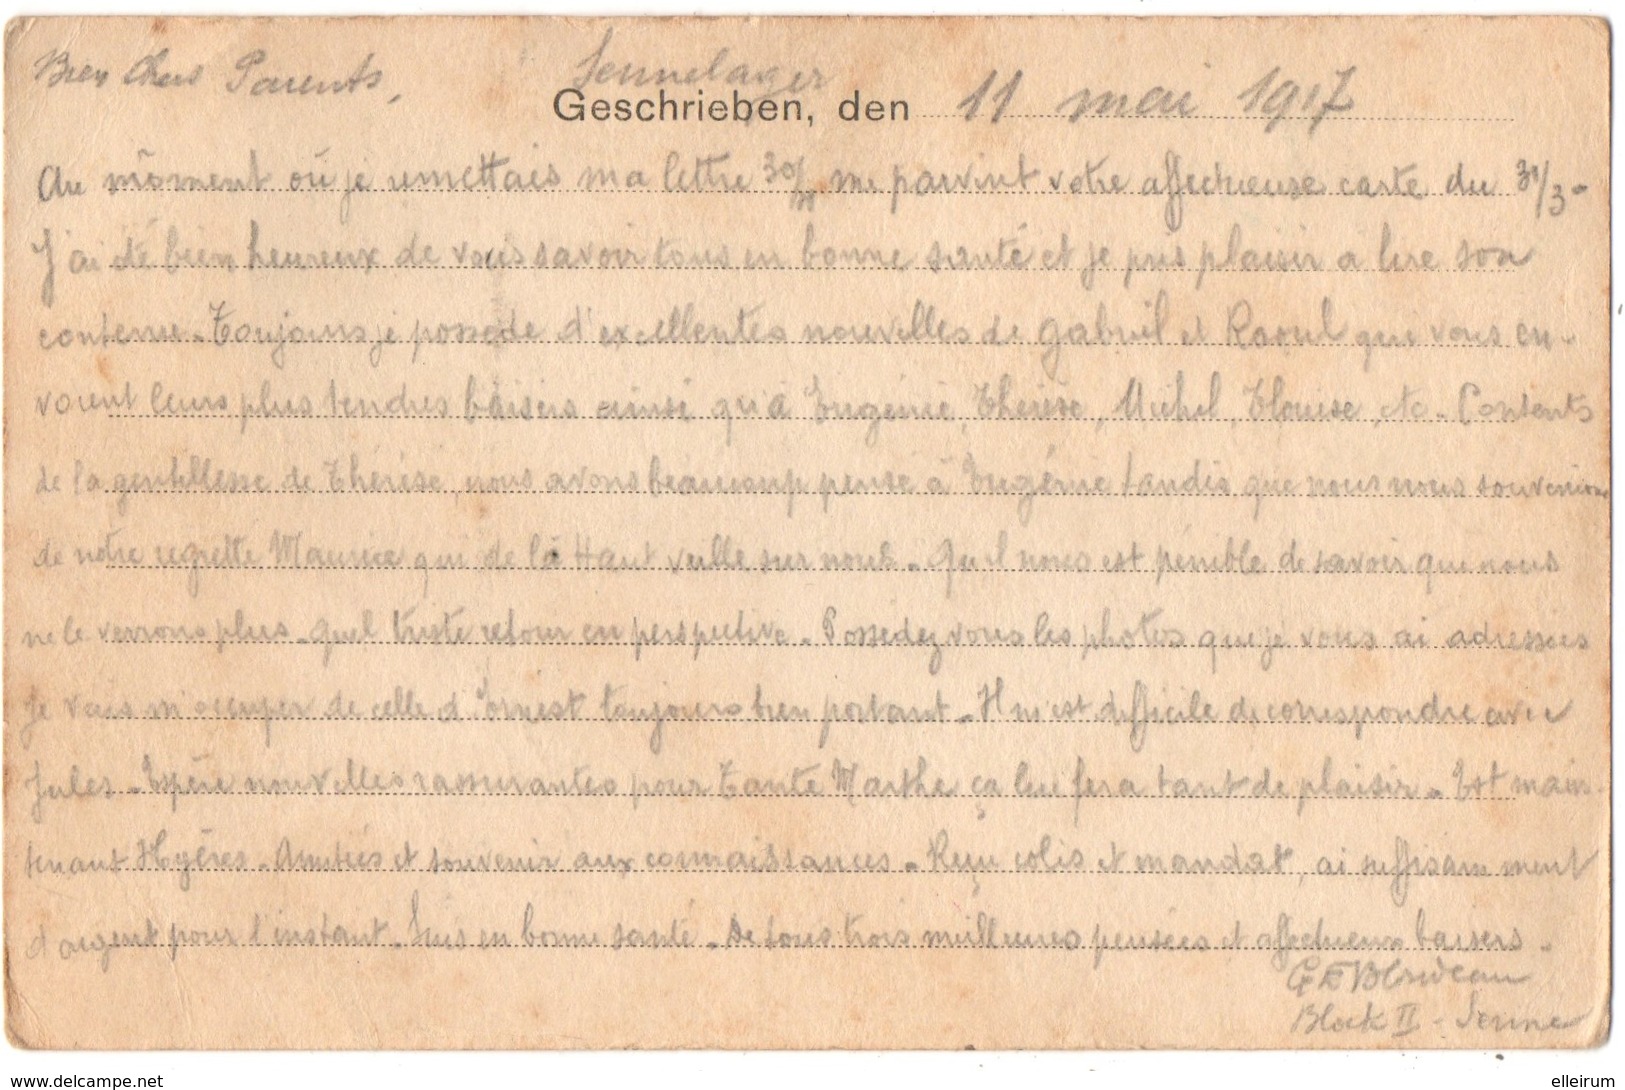 Bien Chers Parents, Sennelager
Geschrieben, den 11 mai 1917
Au moment où je remettais ma lettre 30/ me parvint votre affectueuse carte du 31/3-
J'ai été bien heureux de vous savoir tous en bonne santé et je pris plaisir à lire son
contenu - Toujours je possède d'excellentes nouvelles de Gabriel et Raoul qui vous en-
voient leurs plus tendres baisers ainsi qu'à Eugénie, Thérèse, Michel, Elouise, etc - Contents
de la gentillesse de Thérèse, nous avons beaucoup pensé à Eugénie tandis que nous nous souvenions
de notre regretté Maurice qui de là Haut veille sur nous - Qu'il nous est pénible de savoir que nous
ne le verrons plus - quel triste retour en perspective - Possédez vous les photos que je vous ai adressées
je vais m'occuper de celle d'Ernest toujours bien portant - Il m'est difficile de correspondre avec
Jules - Espère nouvelles rassurantes pour Tante Marthe ça lui fera tant de plaisir - Est main-
tenant Hyères - Amitiés et souvenir aux connaissances - Reçu colis et mandat, ai suffisamment
d'argent pour l'instant - Suis en bonne santé - De tous trois meilleures pensées et affectueux baisers -
Block II - Senne
www.delcampe.net
elleirum